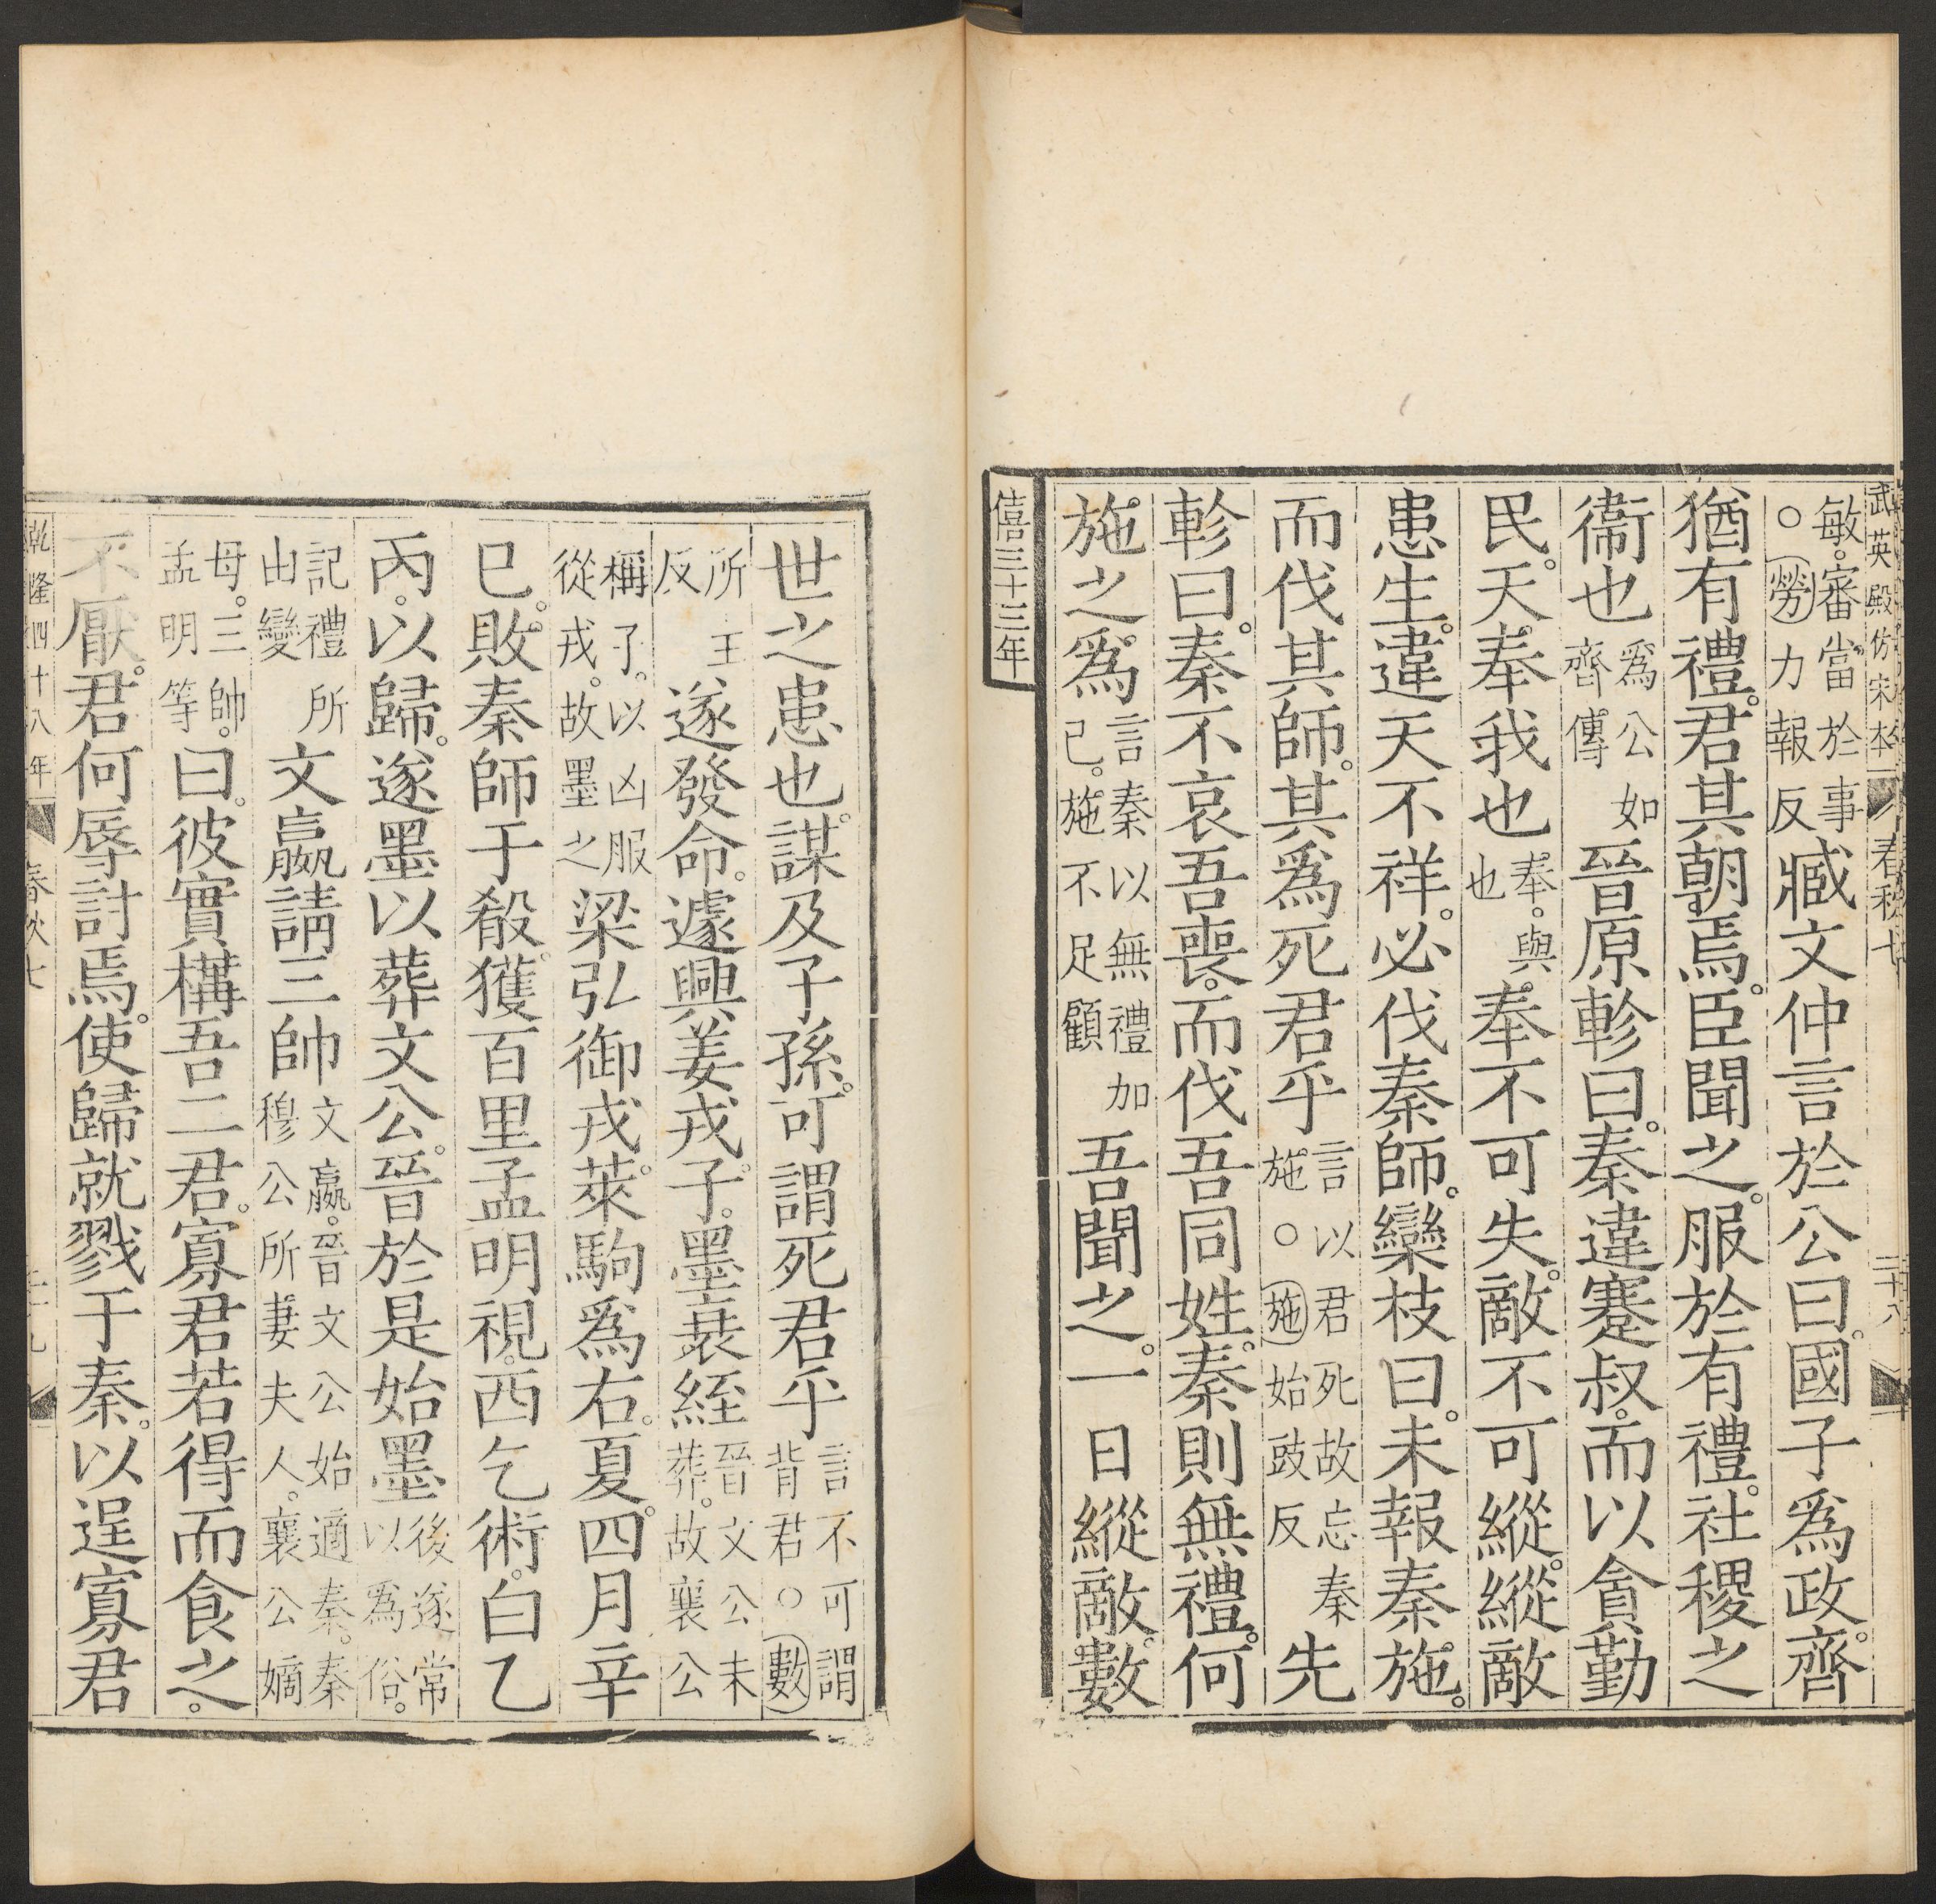 武英殿仿宋本　春秋七　二十八
敏。審當於事
○勞力報反
臧文仲言於公曰。國子爲政。齊
猶有禮。君其朝焉。臣聞之。服於有禮。社稷之
衞也
爲公如
齊傳
晉原軫曰。秦違蹇叔。而以貪勤
民。天奉我也
奉。與
也
奉不可失。敵不可縱。縱敵
患生。違天不祥。必伐秦師。欒枝曰。未報秦施。
而伐其師。其爲死君乎
言以君死故忘秦
施○施始豉反
先
軫曰。秦不哀吾喪。而伐吾同姓。秦則無禮。何
施之爲
言秦以無禮加
己。施不足顧
吾聞之。一日縱敵。數
僖三十三年
世之患也。謀及子孫。可謂死君乎
言不可謂
背君○數
所
反
主
遂發命。遽興姜戎。子。墨衰絰
晉文公未
葬。故襄公
稱子。以凶服
從戎。故墨之
梁弘御戎。萊駒爲右。夏。四月辛
巳。敗秦師于殽。獲百里孟明視。西乞術。白乙
丙。以歸。遂墨以葬文公。晉於是始墨
後遂常
以爲俗。
記禮所
由變
文嬴請三帥
文嬴。晉文公始適秦。秦
穆公所妻夫人。襄公嫡
母。三帥。
孟明等
曰。彼實構吾二君。寡君若得而食之。
不厭。君何辱討焉。使歸就戮于秦。以逞寡君
乾隆四十八年　春秋七　二十九